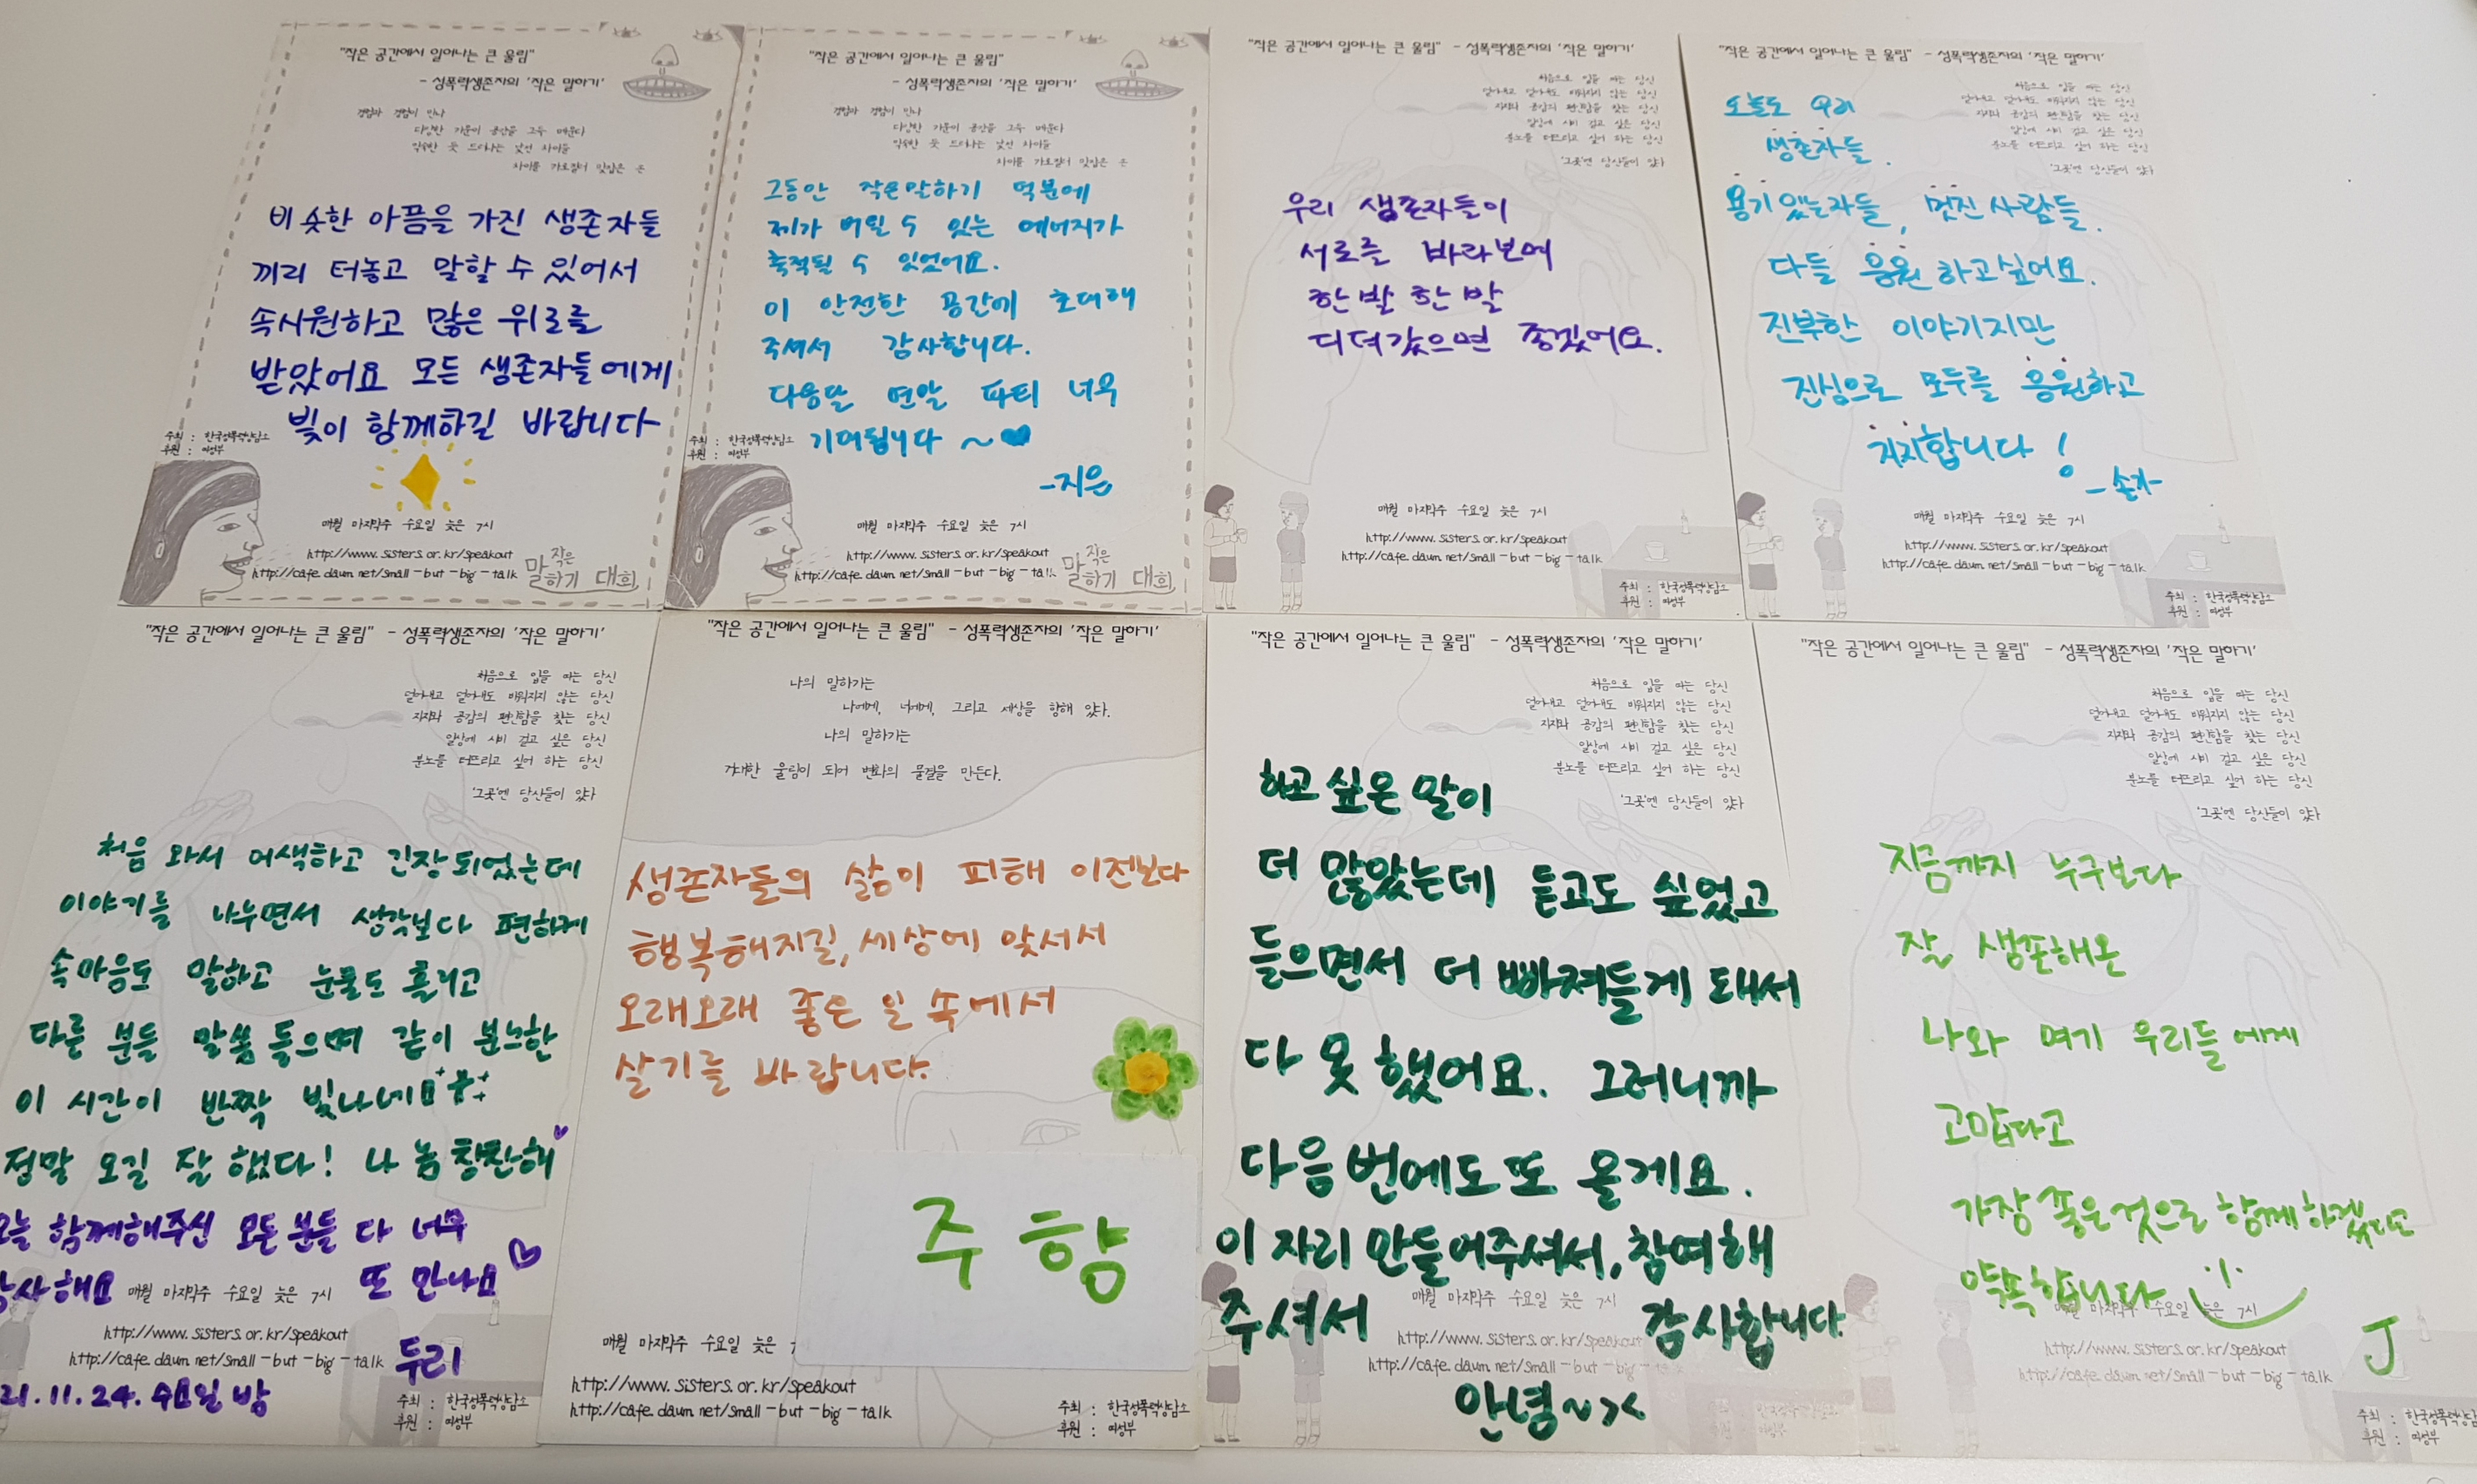 "작은 공간에서 일어나는 큰 울림"
- 성폭력생존자의 '작은 말하기'
경험과 경험이 만나
다양한 기운이 공간을 그득 메운다
약속한 듯 드러나는 낯선 차이들
차이를 가로질러 맞잡은 손
비슷한 아픔을 가진 생존자들
끼리 터놓고 말할 수 있어서
속시원하고 많은 위로를
받았어요 모든 생존자들에게
빛이 함께하길 바랍니다
주최 : 한국성폭력상담소
후원 : 여성부
매월 마지막주 수요일 늦은 7시
http://www.sisters.or.kr/speakout
http://cafe.daum.net/small-but-big-talk
작은
말하기 대회
"작은 공간에서 일어나는 큰 울림"
- 성폭력생존자의 '작은 말하기'
경험과 경험이 만나
다양한 기운이 공간을 그득 메운다
약속한 듯 드러나는 낯선 차이들
차이를 가로질러 맞잡은 손
그동안 작은말하기 덕분에
제가 버틸 수 있는 에너지가
축적될 수 있었어요.
이 안전한 공간에 초대해
주셔서 감사합니다.
다음달 연말 파티 너무
기대됩니다 ~♥
-지은
주최 : 한국성폭력상담소
후원 : 여성부
매월 마지막주 수요일 늦은 7시
http://www.sisters.or.kr/speakout
http://cafe.daum.net/small-but-big-talk
작은
말하기 대회
"작은 공간에서 일어나는 큰 울림" - 성폭력생존자의 '작은 말하기'
처음으로 입을 떼는 당신
덜어내고 덜어내도 비워지지 않는 당신
지지와 공감의 편안함을 찾는 당신
일상에 시비 걸고 싶은 당신
분노를 터뜨리고 싶어 하는 당신
'그곳'엔 당신들이 있다
우리 생존자들이
서로를 바라보며
한발 한발
디뎌갔으면 좋겠어요.
매월 마지막주 수요일 늦은 7시
http://www.sisters.or.kr/speakout
http://cafe.daum.net/small-but-big-talk
주최 : 한국성폭력상담소
후원 : 여성부
"작은 공간에서 일어나는 큰 울림" - 성폭력생존자의 '작은 말하기'
처음으로 입을 떼는 당신
덜어내고 덜어내도 비워지지 않는 당신
지지와 공감의 편안함을 찾는 당신
일상에 시비 걸고 싶은 당신
분노를 터뜨리고 싶어 하는 당신
'그곳'엔 당신들이 있다
오늘도 우리
생존자들.
용기있는자들, 멋진사람들.
다들 응원하고싶어요.
진부한 이야기지만
진심으로 모두를 응원하고
지지합니다!
매월 마지막주 수요일 늦은 7시
http://www.sisters.or.kr/speakout
http://cafe.daum.net/small-but-big-talk
주최 : 한국성폭력상담소
후원 : 여성부
"작은 공간에서 일어나는 큰 울림" - 성폭력생존자의 '작은 말하기'
처음으로 입을 떼는 당신
덜어내고 덜어내도 비워지지 않는 당신
지지와 공감의 편안함을 찾는 당신
일상에 시비 걸고 싶은 당신
분노를 터뜨리고 싶어 하는 당신
'그곳'엔 당신들이 있다
처음 와서 어색하고 긴장되었는데
이야기를 나누면서 생각보다 편하게
속마음도 말하고 눈물도 흘리고
다른 분들 말씀 들으며 같이 분노한
이 시간이 반짝 빛나네요
정말 오길 잘 했다! 나 놈 칭찬해
오늘 함께해주신 모든분들 다 너무
감사해요 또 만나요
매월 마지막주 수요일 늦은 7시
http://www.sisters.or.kr/speakout
http://cafe.daum.net/small-but-big-talk
두리
21.11.24. 수요일 밤
주최 : 한국성폭력상담소
후원 : 여성부
"작은 공간에서 일어나는 큰 울림" - 성폭력생존자의 '작은 말하기'
나의 말하기는
나에게, 너에게, 그리고 세상을 향해 있다.
나의 말하기는
거대한 울림이 되어 변화의 물결을 만든다.
생존자들의 삶이 피해 이전보다
행복해지길, 세상에 맞서서
오래오래 좋은 일 속에서
살기를 바랍니다.
주향
매월 마지막주 수요일 늦은 7
http://www.sisters.or.kr/speakout
http://cafe.daum.net/small-but-big-talk
주최 : 한국성폭력상담소
후원 : 여성부
"작은 공간에서 일어나는 큰 울림" - 성폭력생존자의 '작은 말하기'
처음으로 입을 떼는 당신
덜어내고 덜어내도 비워지지 않는 당신
지지와 공감의 편안함을 찾는 당신
일상에 시비 걸고 싶은 당신
분노를 터뜨리고 싶어 하는 당신
'그곳'엔 당신들이 있다
하고싶은 말이
더 많았는데 듣고도 싶었고
들으면서 더 빠져들게 돼서
다 못했어요. 그러니까
다음번에도 또 올게요.
이 자리 만들어주셔서, 참여해
주셔서 감사합니다.
안녕~><
매월 마지막주 수요일 늦은 7시
http://www.sisters.or.kr/speakout
http://cafe.daum.net/small-but-big-talk
한국성폭력상담소
여성부
"작은 공간에서 일어나는 큰 울림" - 성폭력생존자의 '작은 말하기'
처음으로 입을 떼는 당신
덜어내고 덜어내도 비워지지 않는 당신
지지와 공감의 편안함을 찾는 당신
일상에 시비 걸고 싶은 당신
분노를 터뜨리고 싶어 하는 당신
'그곳'엔 당신들이 있다
지금까지 누구보다
잘 생존해온
나와 여기 우리들에게
고맙다고
가장 좋은것으로 함께하겠다고
약속합니다
J
매월 마지막주 수요일 늦은 7시
http://www.sisters.or.kr/speakout
http://cafe.daum.net/small-but-big-talk
주최 : 한국성폭력상담
후원 : 여성부